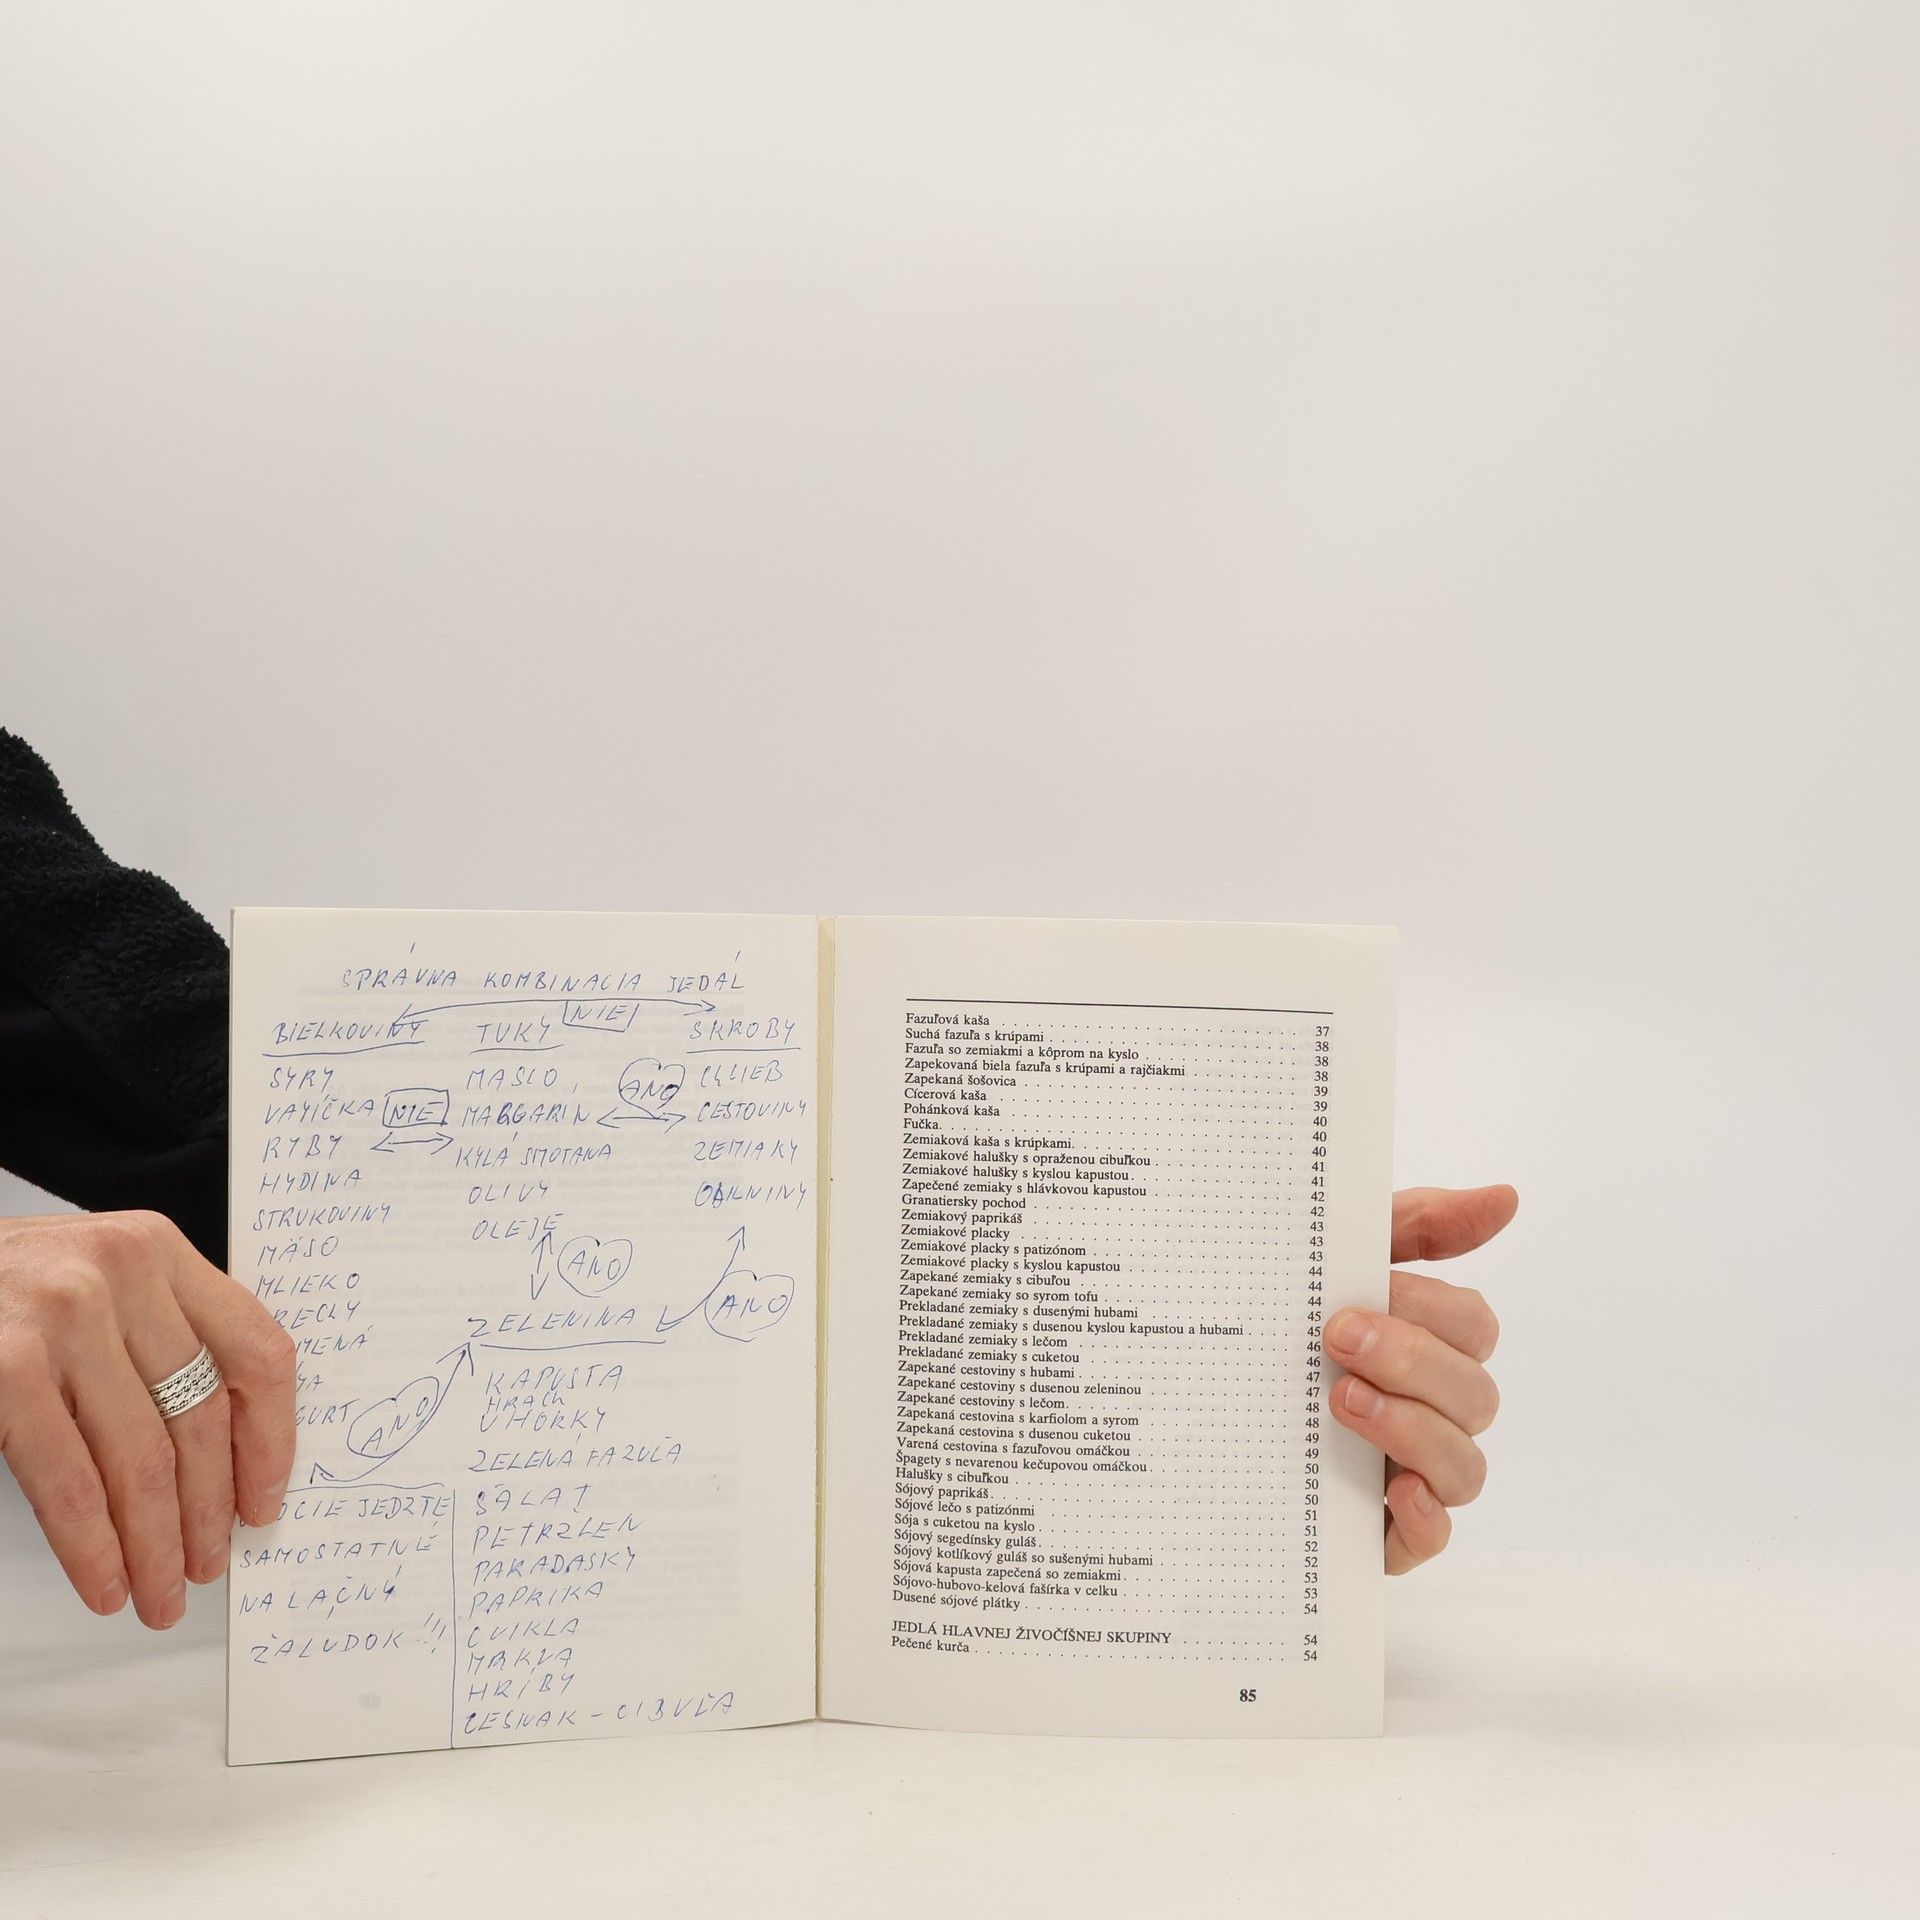 SPRÁVNA KOMBINACIA JEDÁL
NIE
BIELKOVINY TUKY SKROBY
SYRY MASLO ANO CHLIEB
VAYÍČKA NIE MARGARÍN CESTOVINY
RYBY KYLÁ SMOTANA ZEMIAKY
HYDINA OLIVY OBILNINY
STRUKOVINY OLEJE
MÄSO ANO
MLIEKO ANO
ZELENINA
ANO
KAPUSTA
HRACH
UHORKY
ZELENÁ FAZUĽA
JEDZTE
SAMOSTATNE
NA LAČNÝ
ŽALUDOK !!!
ŠALAT
PETRZLEN
PARADASKY
PAPRIKA
CVIKLA
MRKVA
HRÍBY
CESNAK - CIBUĽA
Fazuľová kaša . . . 37
Suchá fazuľa s krúpami . . . 38
Fazuľa so zemiakmi a kôprom na kyslo . . . 38
Zapekovaná biela fazuľa s krúpami a rajčiakmi . . . 38
Zapekaná šošovica . . . 39
Cícerová kaša . . . 39
Pohánková kaša . . . 40
Fučka . . . 40
Zemiaková kaša s krúpkami . . . 40
Zemiakové halušky s opraženou cibuľkou . . . 41
Zemiakové halušky s kyslou kapustou . . . 41
Zapečené zemiaky s hlávkovou kapustou . . . 42
Granatiersky pochod . . . 42
Zemiakový paprikáš . . . 43
Zemiakové placky . . . 43
Zemiakové placky s patizónom . . . 43
Zemiakové placky s kyslou kapustou . . . 44
Zapekané zemiaky s cibuľou . . . 44
Zapekané zemiaky so syrom tofu . . . 44
Prekladané zemiaky s dusenými hubami . . . 45
Prekladané zemiaky s dusenou kyslou kapustou a hubami . . . 45
Prekladané zemiaky s lečom . . . 46
Prekladané zemiaky s cuketou . . . 46
Zapekané cestoviny s hubami . . . 47
Zapekané cestoviny s dusenou zeleninou . . . 47
Zapekané cestoviny s lečom . . . 48
Zapekaná cestovina s karfiolom a syrom . . . 48
Zapekaná cestovina s dusenou cuketou . . . 49
Varená cestovina s fazuľovou omáčkou . . . 49
Špagety s nevarenou kečupovou omáčkou . . . 50
Halušky s cibuľkou . . . 50
Sójový paprikáš . . . 50
Sójové lečo s patizónmi . . . 51
Sója s cuketou na kyslo . . . 51
Sójový segedínsky guláš . . . 52
Sójový kotlíkový guláš so sušenými hubami . . . 52
Sójová kapusta zapečená so zemiakmi . . . 53
Sójovo-hubovo-kelová fašírka v celku . . . 53
Dusené sójové plátky . . . 54
JEDLÁ HLAVNEJ ŽIVOČÍŠNEJ SKUPINY . . . 54
Pečené kurča . . . 54
85